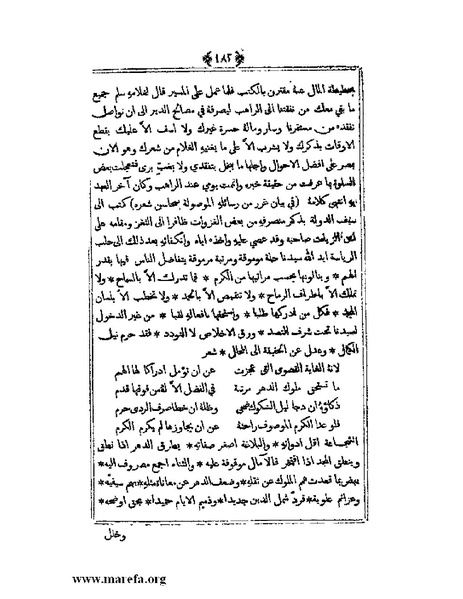 ﴿١٨٢﴾
المال عدة مقترن بالكتب فلما عمل على المسير قال لغلامه سلم جميع
ما بقي معك من نفقتنا الى الراهب ليصرفه في مصالح الدير الى ان نواصل
نقده من مستقرنا وسار وماله حسرة غيرك ولا اسف الا عليك يقطع
الاوقات بذكرك ولا يشرب الا على ما يغنيه الغلام من شعرك وهو الان
بمصر على افضل الاحوال واجلها ما يخل بتفقدي ولا يغب بري فتعجلت بعض
السلوة بما عرفت من حقيقة خبره واتممت يومي عند الراهب وكان آخر العهد
به انتهى كلامه (في بيان غرر من رسائله الموصولة بمحاسن شعره) كتب الى
سيف الدولة بذكر منصرفه من بعض الغزوات ظافرا الى الثغر ومقامه على
صاحبه وقد عصي عليه واخذه اياه وانكفائه بعد ذلك الى حلب
الرياسة ايد الله سيدنا حلة موموقة ومرتبة مرموقة يتفاضل الناس فيها بقدر
الهمم * وينالونها بحسب مراتبها من الكرم * فما تدرك الا بالسماح * ولا
تملك الا باطراف الرماح * ولا تقتنص الا بالجد * ولا تخطب الا بلسان
المجد * فكل من ادركها طلبا * واستحقها بافعاله لقبا * من غير الدخول
لسيدنا تحت شرف التصد * ورق الاخلاص لا التودد * فقد حرم نيل
الكمال * وعدل عن الحقيقة الى المحال * شعر
لانه الغاية القصوى التي عجزت عن ان تؤمل ادراكا لها الهمم
ما تستحق ملوك الدهر مرتبة في الفضل الا له من فوقها قدم
وظله ان خطا صرف الردى حرم
فلو عدا الكرم الموصوف راحته عن ان يجاورها لم يكرم الكرم
الشجاعة اقل ادواته * والبلاغة اصغر صفاته * يطرق الدهر اذا نطق
وينطق المجد اذا افتخر فالآمال موقوفة عليه * والثناء اجمع مصروف اليه *
قعدت همم الملوك عن ثقله * وضعف الدهر عن معاناة مثله * بهمم سيفية *
وعزائم علوية * فرد شمل الدين جديدا * وذميم الايام حميدا * بحق اوضحه *
وخلل
www.marefa.org